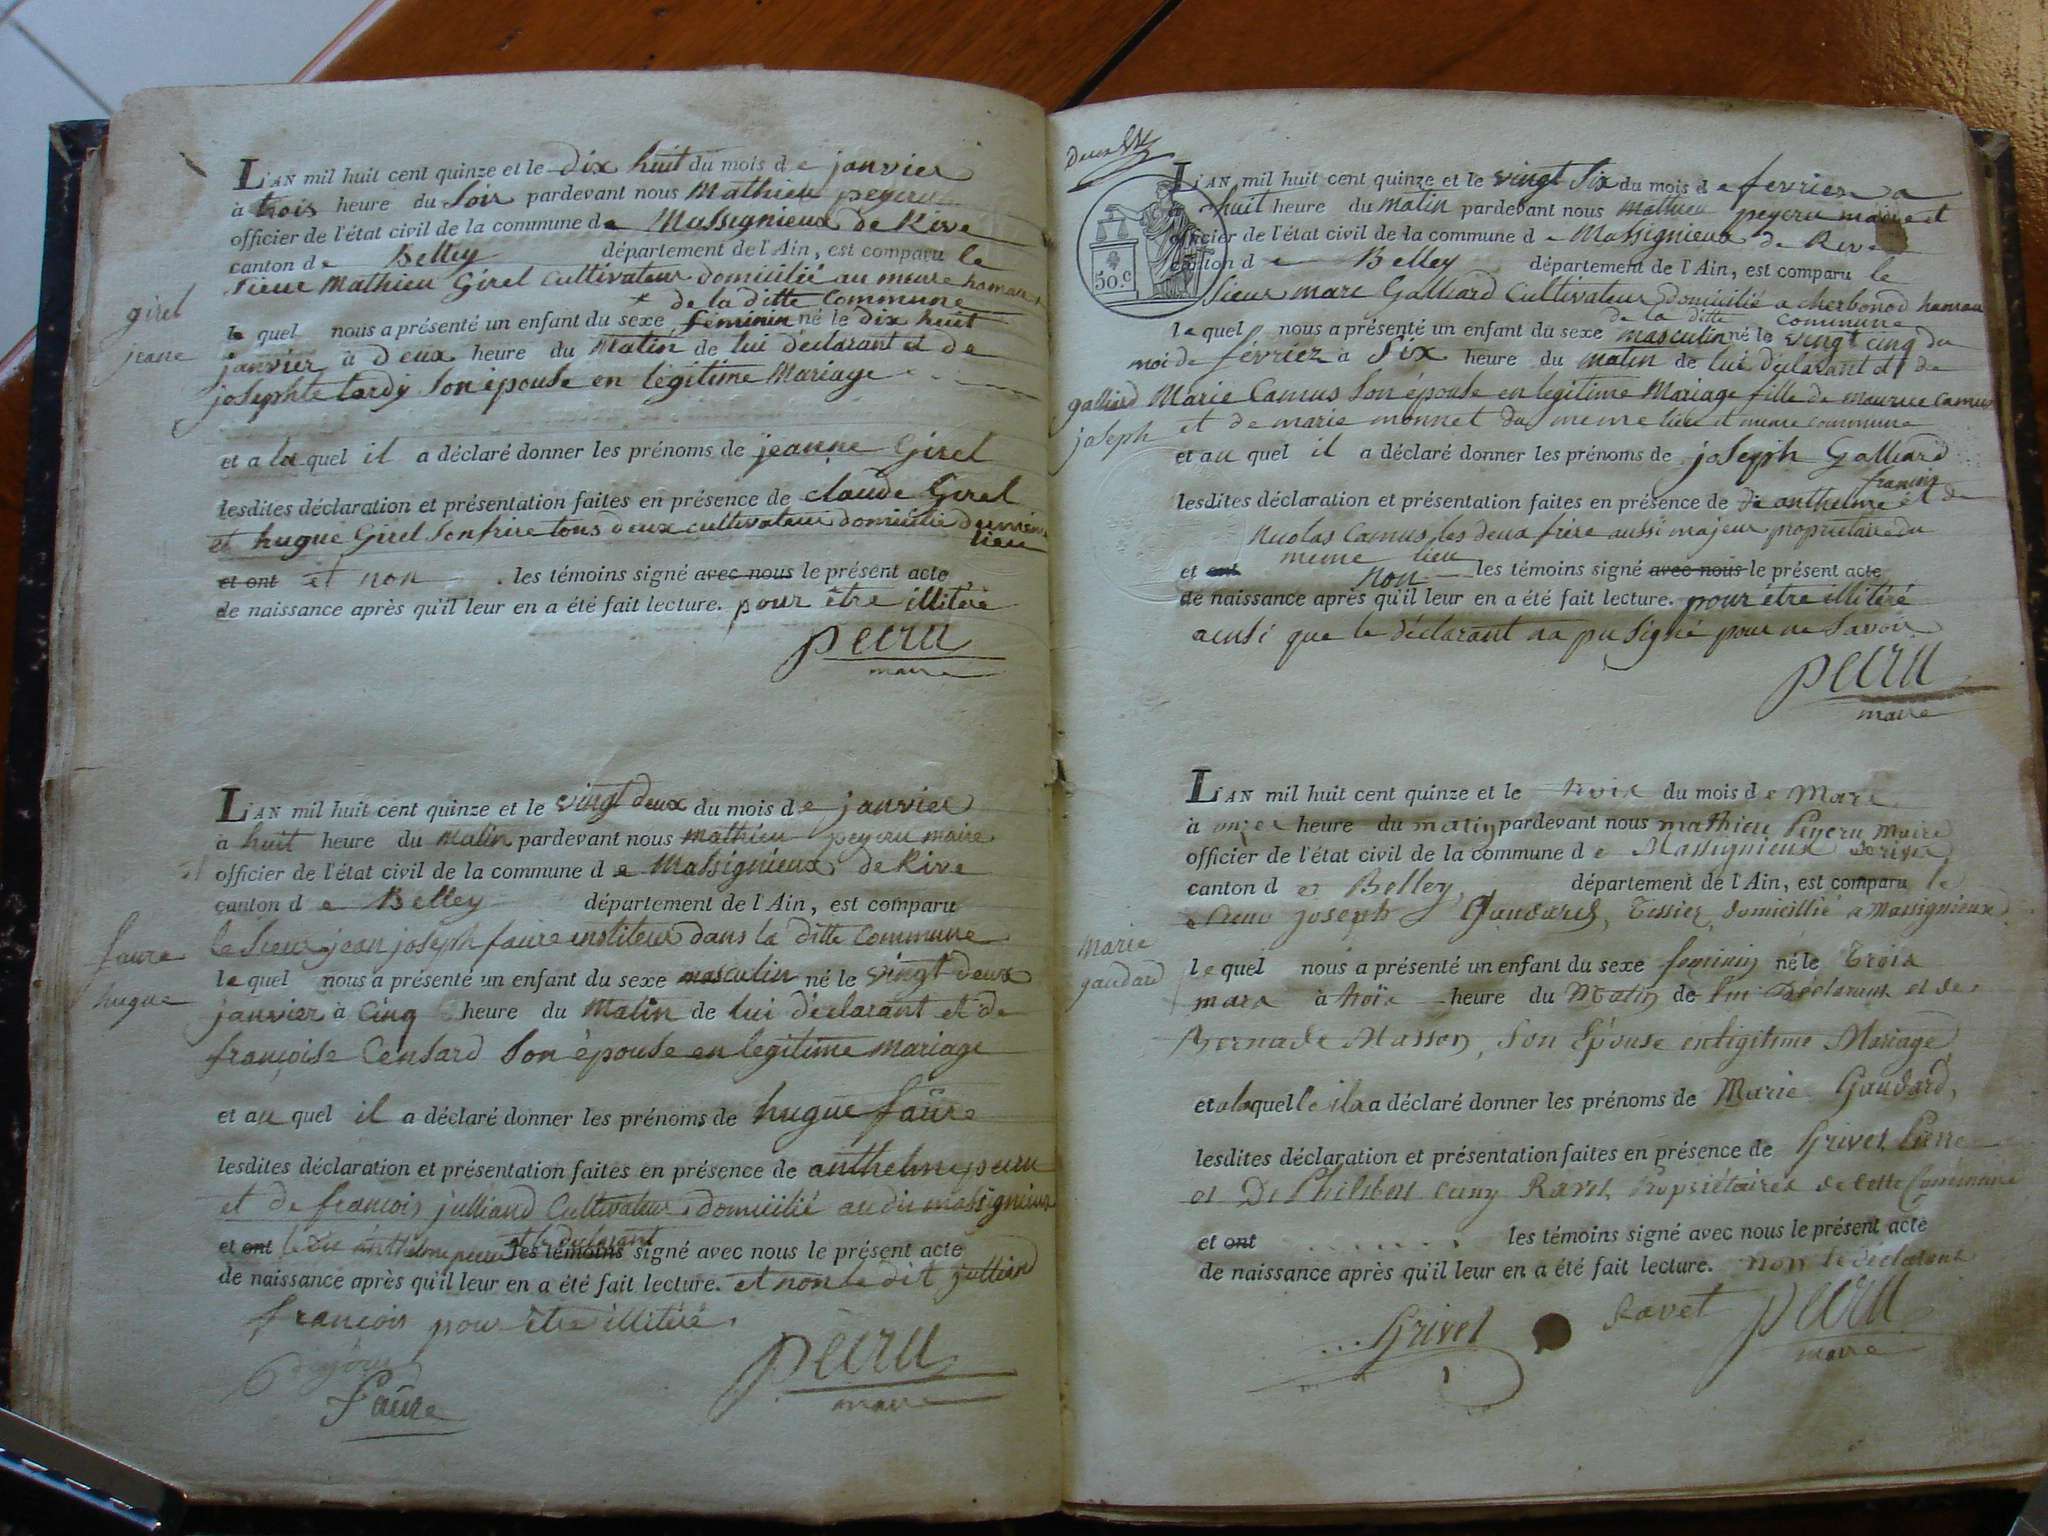 L'AN mil huit cent quinze et le dix huit du mois de janvier
à trois heure du soir pardevant nous Mathieu peyeru
officier de l'état civil de la commune de Massignieux de Rive
canton de Belley département de l'Ain, est comparu le
sieur Mathieu Girel cultivateur domicilié au meme hamau
+ de la ditte commune
le quel nous a présenté un enfant du sexe féminin né le dix huit
girel
jeane
janvier à deux heure du Matin de lui déclarant et de
josephte tardy son épouse en légitime Mariage
et a la quel il a déclaré donner les prénoms de jeanne Girel
lesdites déclaration et présentation faites en présence de claude Girel
et hugue Girel son frire tous deux cultivateur domicilié du meme
lieu
et ont et non les témoins signé avec nous le présent acte
de naissance après qu'il leur en a été fait lecture. pour être illitéré
pecru
maire
L'AN mil huit cent quinze et le vingt deux du mois de janvier
à huit heure du Matin pardevant nous mathieu peyeru maire
officier de l'état civil de la commune de Massignieux de Rive
canton de Belley département de l'Ain, est comparu
le sieur jean joseph faure institeur dans la ditte commune
faure
hugue
le quel nous a présenté un enfant du sexe masculin né le vingt deux
janvier à cinq heure du Matin de lui déclarant et de
françoise Censard son épouse en légitime mariage
et au quel il a déclaré donner les prénoms de hugue faure
lesdites déclaration et présentation faites en présence de anthelme pecru
et de françois julliand cultivateur domicilié au dit massignieux
et ont le dit anthelme pecru et le déclarant les témoins signé avec nous le présent acte
de naissance après qu'il leur en a été fait lecture. et non le dit julliand
françois pour être illitéré.
faure
pecru
maire
50.c
L'AN mil huit cent quinze et le vingt six du mois de fevrier a
huit heure du matin pardevant nous mathieu peyeru maire et
officier de l'état civil de la commune de Massignieux de Rive
canton de Belley département de l'Ain, est comparu le
sieur marc Galliard cultivateur domicilié a cherbonod hamau
de la ditte commune
le quel nous a présenté un enfant du sexe masculin né le vingt cinq du
moi de février à six heure du matin de lui déclarant et de
galliard
joseph
Marie Camus son épouse en légitime Mariage fille de maurice camus
et de marie monnet du meme lieu et meme commune
et au quel il a déclaré donner les prénoms de joseph Galliard
lesdites déclaration et présentation faites en présence de de anthelme et de
Nicolas Camus les deux frère aussi majeur propriétaire du
meme lieu
et ont non les témoins signé avec nous le présent acte
de naissance après qu'il leur en a été fait lecture. pour être illitéré
ainsi que le déclarant na pu signé pour ne savoir
pecru
maire
L'AN mil huit cent quinze et le trois du mois de Mars
à onzes heure du matin pardevant nous mathieu Peyeru Maire
officier de l'état civil de la commune de Massignieux derives
canton de Belley département de l'Ain, est comparu le
sieur joseph Gaudard, Tissier, domicillié a Massignieux
Marie
gaudard
le quel nous a présenté un enfant du sexe feminin né le Trois
mars à trois heure du Matin de lui Déclarant et de
Bernade Masson, son Épouse en légitime Mariage
et a laquelle il a a déclaré donner les prénoms de Marie Gaudard,
lesdites déclaration et présentation faites en présence de Grivel Pierre
et De Philibert Ravet, Propriétaires de cette Commune
et ont les témoins signé avec nous le présent acte
de naissance après qu'il leur en a été fait lecture. non le déclarant
Grivel
Ravet
pecru
maire